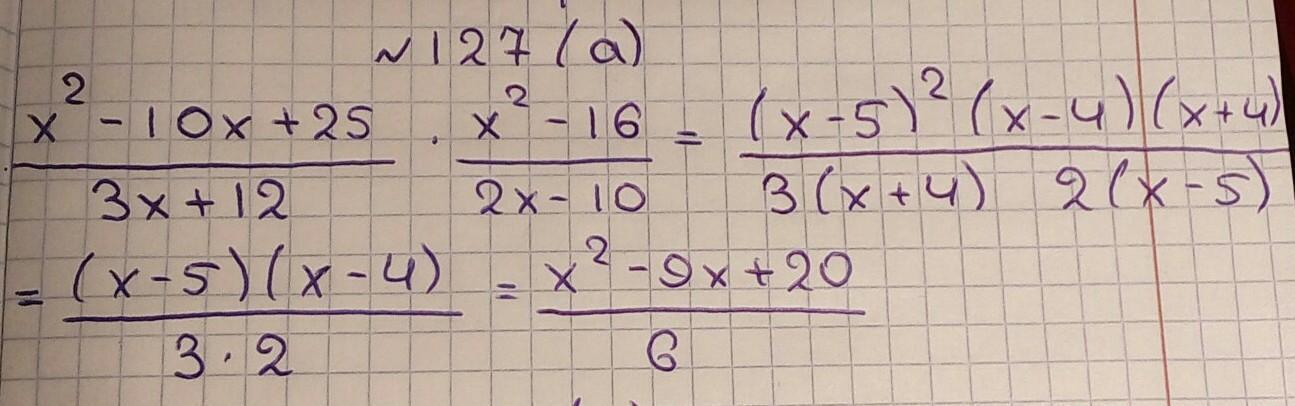 ~127 (а)
(x² - 10x + 25)/(3x + 12) · (x² - 16)/(2x - 10) = ((x - 5)² (x - 4)(x + 4))/(3(x + 4) 2(x - 5))
= ((x - 5)(x - 4))/(3 · 2) = (x² - 9x + 20)/6